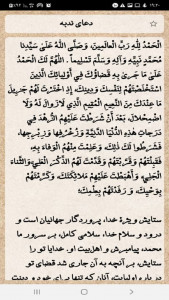 دعای ندبه
الْحَمْدُ لِلَّهِ رَبِّ الْعالَمِينَ، وَصَلَّى اللّٰهُ عَلَىٰ سَيِّدِنا
مُحَمَّدٍ نَبِيِّهِ وَآلِهِ وَسَلَّمَ تَسْلِيماً. اللّٰهُمَّ لَكَ الْحَمْدُ
عَلَىٰ مَا جَرىٰ بِهِ قَضاؤُكَ فِي أَوْلِيائِكَ الَّذِينَ
اسْتَخْلَصْتَهُمْ لِنَفْسِكَ وَدِينِكَ، إِذِ اخْتَرْتَ لَهُمْ جَزِيلَ
مَا عِنْدَكَ مِنَ النَّعِيمِ الْمُقِيمِ الَّذِي لَازَوالَ لَهُ وَلَا
اضْمِحْلالَ، بَعْدَ أَنْ شَرَطْتَ عَلَيْهِمُ الزُّهْدَ فِي
دَرَجاتِ هٰذِهِ الدُّنْيَا الدَّنِيَّةِ وَزُخْرُفِها وَزِبْرِجِها،
فَشَرَطُوا لَكَ ذٰلِكَ، وَعَلِمْتَ مِنْهُمُ الْوَفاءَ بِهِ
فَقَبِلْتَهُمْ وَقَرَّبْتَهُمْ وَقَدَّمْتَ لَهُمُ الذِّكْرَ الْعَلِيَّ وَالثَّناءَ
الْجَلِيَّ، وَأَهْبَطْتَ عَلَيْهِمْ مَلائِكَتَكَ، وَكَرَّمْتَهُمْ
بِوَحْيِكَ، وَرَفَدْتَهُمْ بِعِلْمِكَ؛
ستایش ویژه خدا، پروردگار جهانیان است و
درود و سلام خدا، سلامی کامل، بر سرور ما
محمد، پیامبرش و اهل‌بیت او. خدایا تو را
ستایش، بر آنچه به آن جاری شد قضای تو
درباره اولیایت، آنان که تنها برای خود و دینت